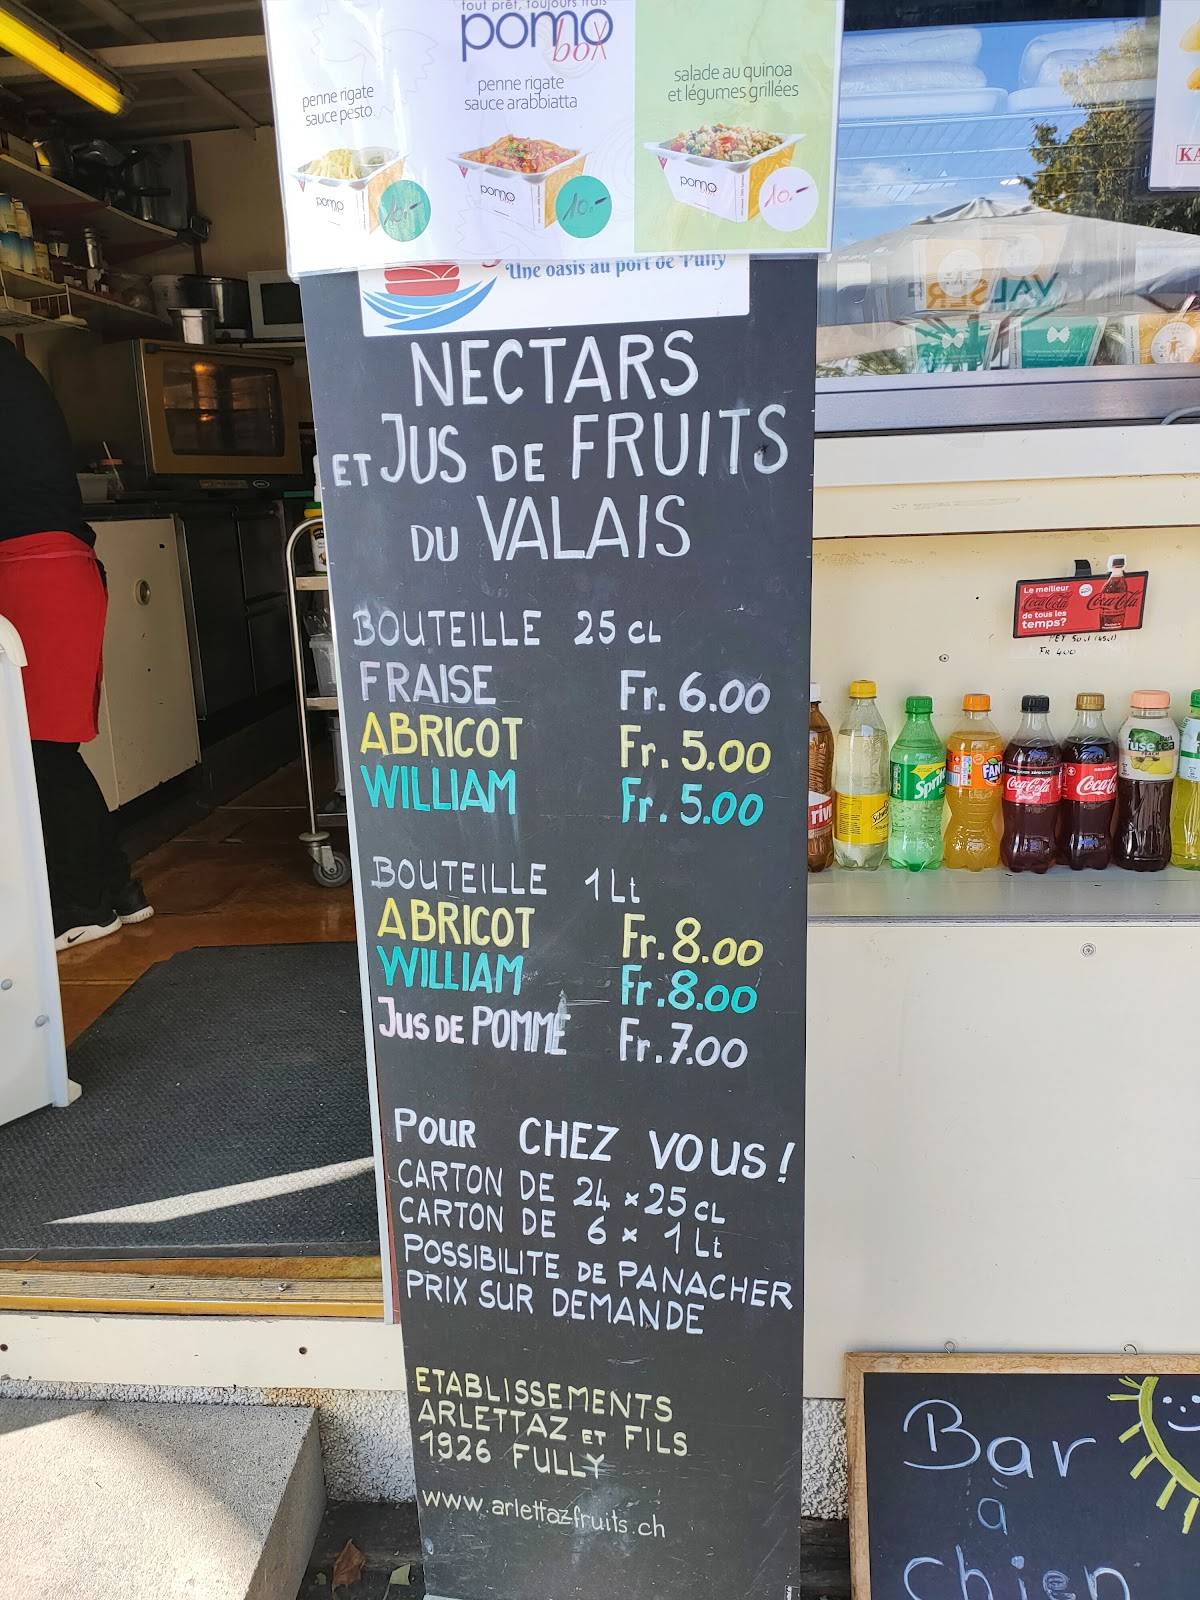 tout prêt, toujours frais
pomo
box
penne rigate
sauce pesto
penne rigate
sauce arabbiatta
salade au quinoa
et légumes grillées
pomo
pomo
pomo
10.-
10.-
10.-
Une oasis au port de Fully
NECTARS
ET JUS DE FRUITS
DU VALAIS
BOUTEILLE 25 CL
FRAISE Fr. 6.00
ABRICOT Fr. 5.00
WILLIAM Fr. 5.00
BOUTEILLE 1 Lt
ABRICOT Fr. 8.00
WILLIAM Fr. 8.00
JUS DE POMME Fr. 7.00
POUR CHEZ VOUS !
CARTON DE 24 x 25 CL
CARTON DE 6 x 1 Lt
POSSIBILITE DE PANACHER
PRIX SUR DEMANDE
ETABLISSEMENTS
ARLETTAZ ET FILS
1926 FULLY
www.arlettazfruits.ch
KA
VALSER
Le meilleur
Coca-Cola
de tous les
temps?
Coca-Cola
Fr 4.00
Sprite
Coca-Cola
Coca-Cola
fusetea
PEACH
Bar
à
chien